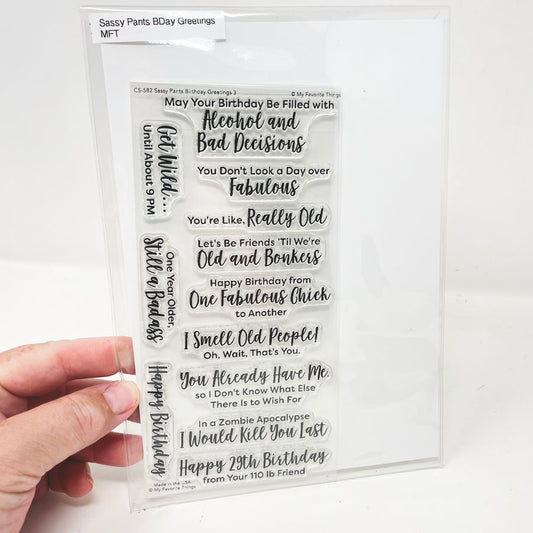 Sassy Pants BDay Greetings
MFT
CS-582 Sassy Pants Birthday Greetings 3
© My Favorite Things
May Your Birthday Be Filled with
Alcohol and
Bad Decisions
You Don't Look a Day over
Fabulous
You're Like, Really Old
Let's Be Friends 'Til We're
Old and Bonkers
Happy Birthday from
One Fabulous Chick
to Another
I Smell Old People!
Oh, Wait, That's You.
You Already Have Me,
so I Don't Know What Else
There Is to Wish For
In a Zombie Apocalypse
I Would Kill You Last
Happy 29th Birthday
from Your 110 lb Friend
Get Wild...
Until About 9 PM
One Year Older,
Still a Badass
Happy Birthday
Made in the USA
© My Favorite Things